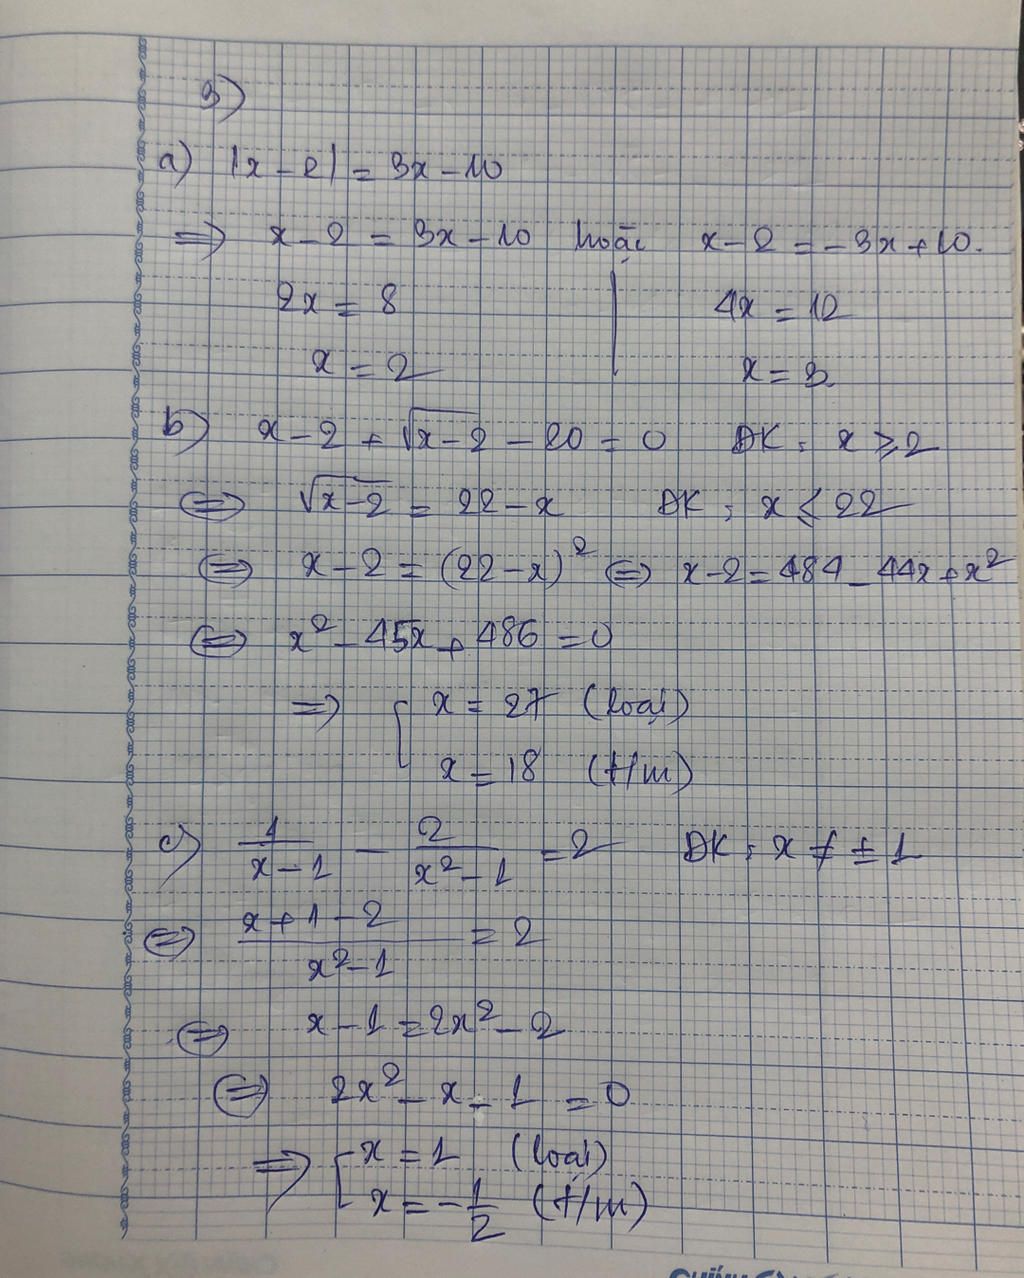 3)
a) |x - 2| = 3x - 10
=> x - 2 = 3x - 10 hoặc x - 2 = - 3x + 10.
2x = 8 | 4x = 12
x = 2 x = 3
b) x - 2 + √(x - 2) - 20 = 0 ĐK: x ⩾ 2
<=> √(x - 2) = 22 - x ĐK: x ⩽ 22
<=> x - 2 = (22 - x)² <=> x - 2 = 484 - 44x + x²
<=> x² - 45x + 486 = 0
=> [ x = 27 (loại)
x = 18 (t/m)
c) 1/(x - 1) - 2/(x² - 1) = 2 ĐK: x ≠ ± 1
<=> (x + 1 - 2)/(x² - 1) = 2
<=> x - 1 = 2x² - 2
<=> 2x² - x - 1 = 0
=> [ x = 1 (loại)
x = - 1/2 (t/m)